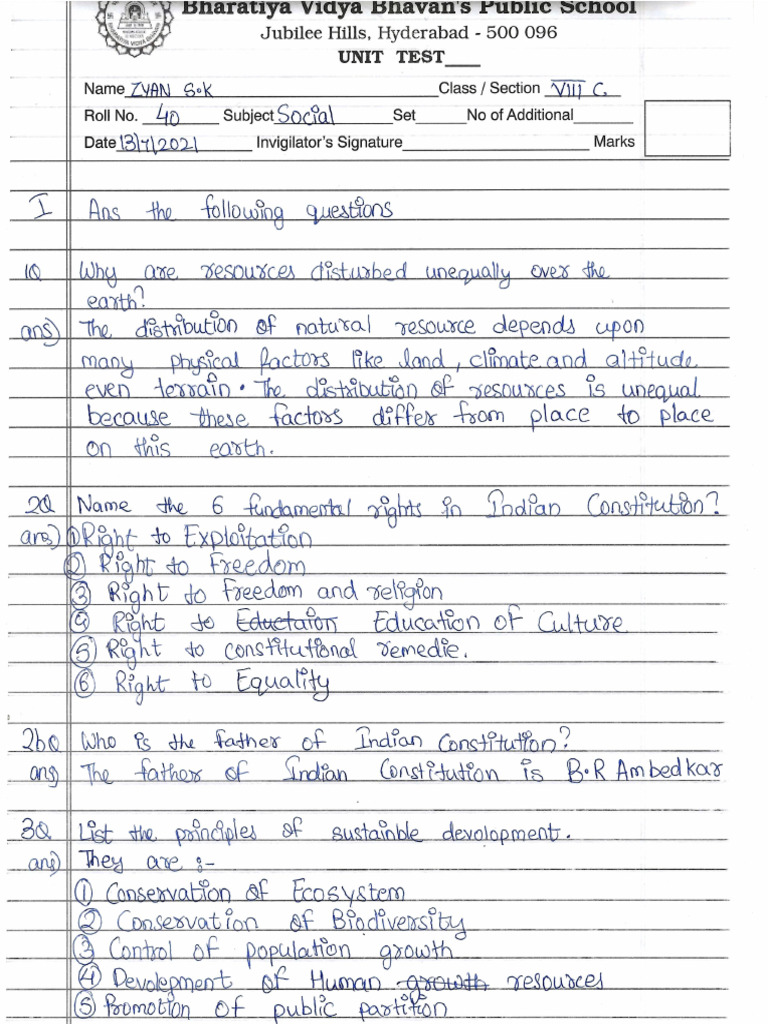 Bharatiya Vidya Bhavan's Public School
Jubilee Hills, Hyderabad - 500 096
UNIT TEST____
Name ZYAN S.K Class / Section VIII C.
Roll No. 40 Subject Social Set____ No of Additional____
Date 13/7/2021 Invigilator's Signature____ Marks
I Ans the following questions
1Q Why are resources disturbed unequally over the
earth?
ans) The distribution of natural resource depends upon
many physical factors like land, climate and altitude
even terrain. The distribution of resources is unequal
because these factors differ from place to place
on this earth.
2Q Name the 6 fundamental rights in Indian Constitution?
ans) ① Right to Exploitation
② Right to Freedom
③ Right to freedom and religion
④ Right to Eductaion Education of Culture
⑤ Right to constitutional remedie.
⑥ Right to Equality
2bQ Who is the father of Indian Constitution?
ans) The father of Indian Constitution is B.R Ambedkar
3Q List the principles of sustainble devolopment.
ans) They are :-
① Conservation of Ecosystem
② Conservation of Biodiversity
③ Control of population growth
④ Devolepment of Human growth resources
⑤ Promotion of public partition